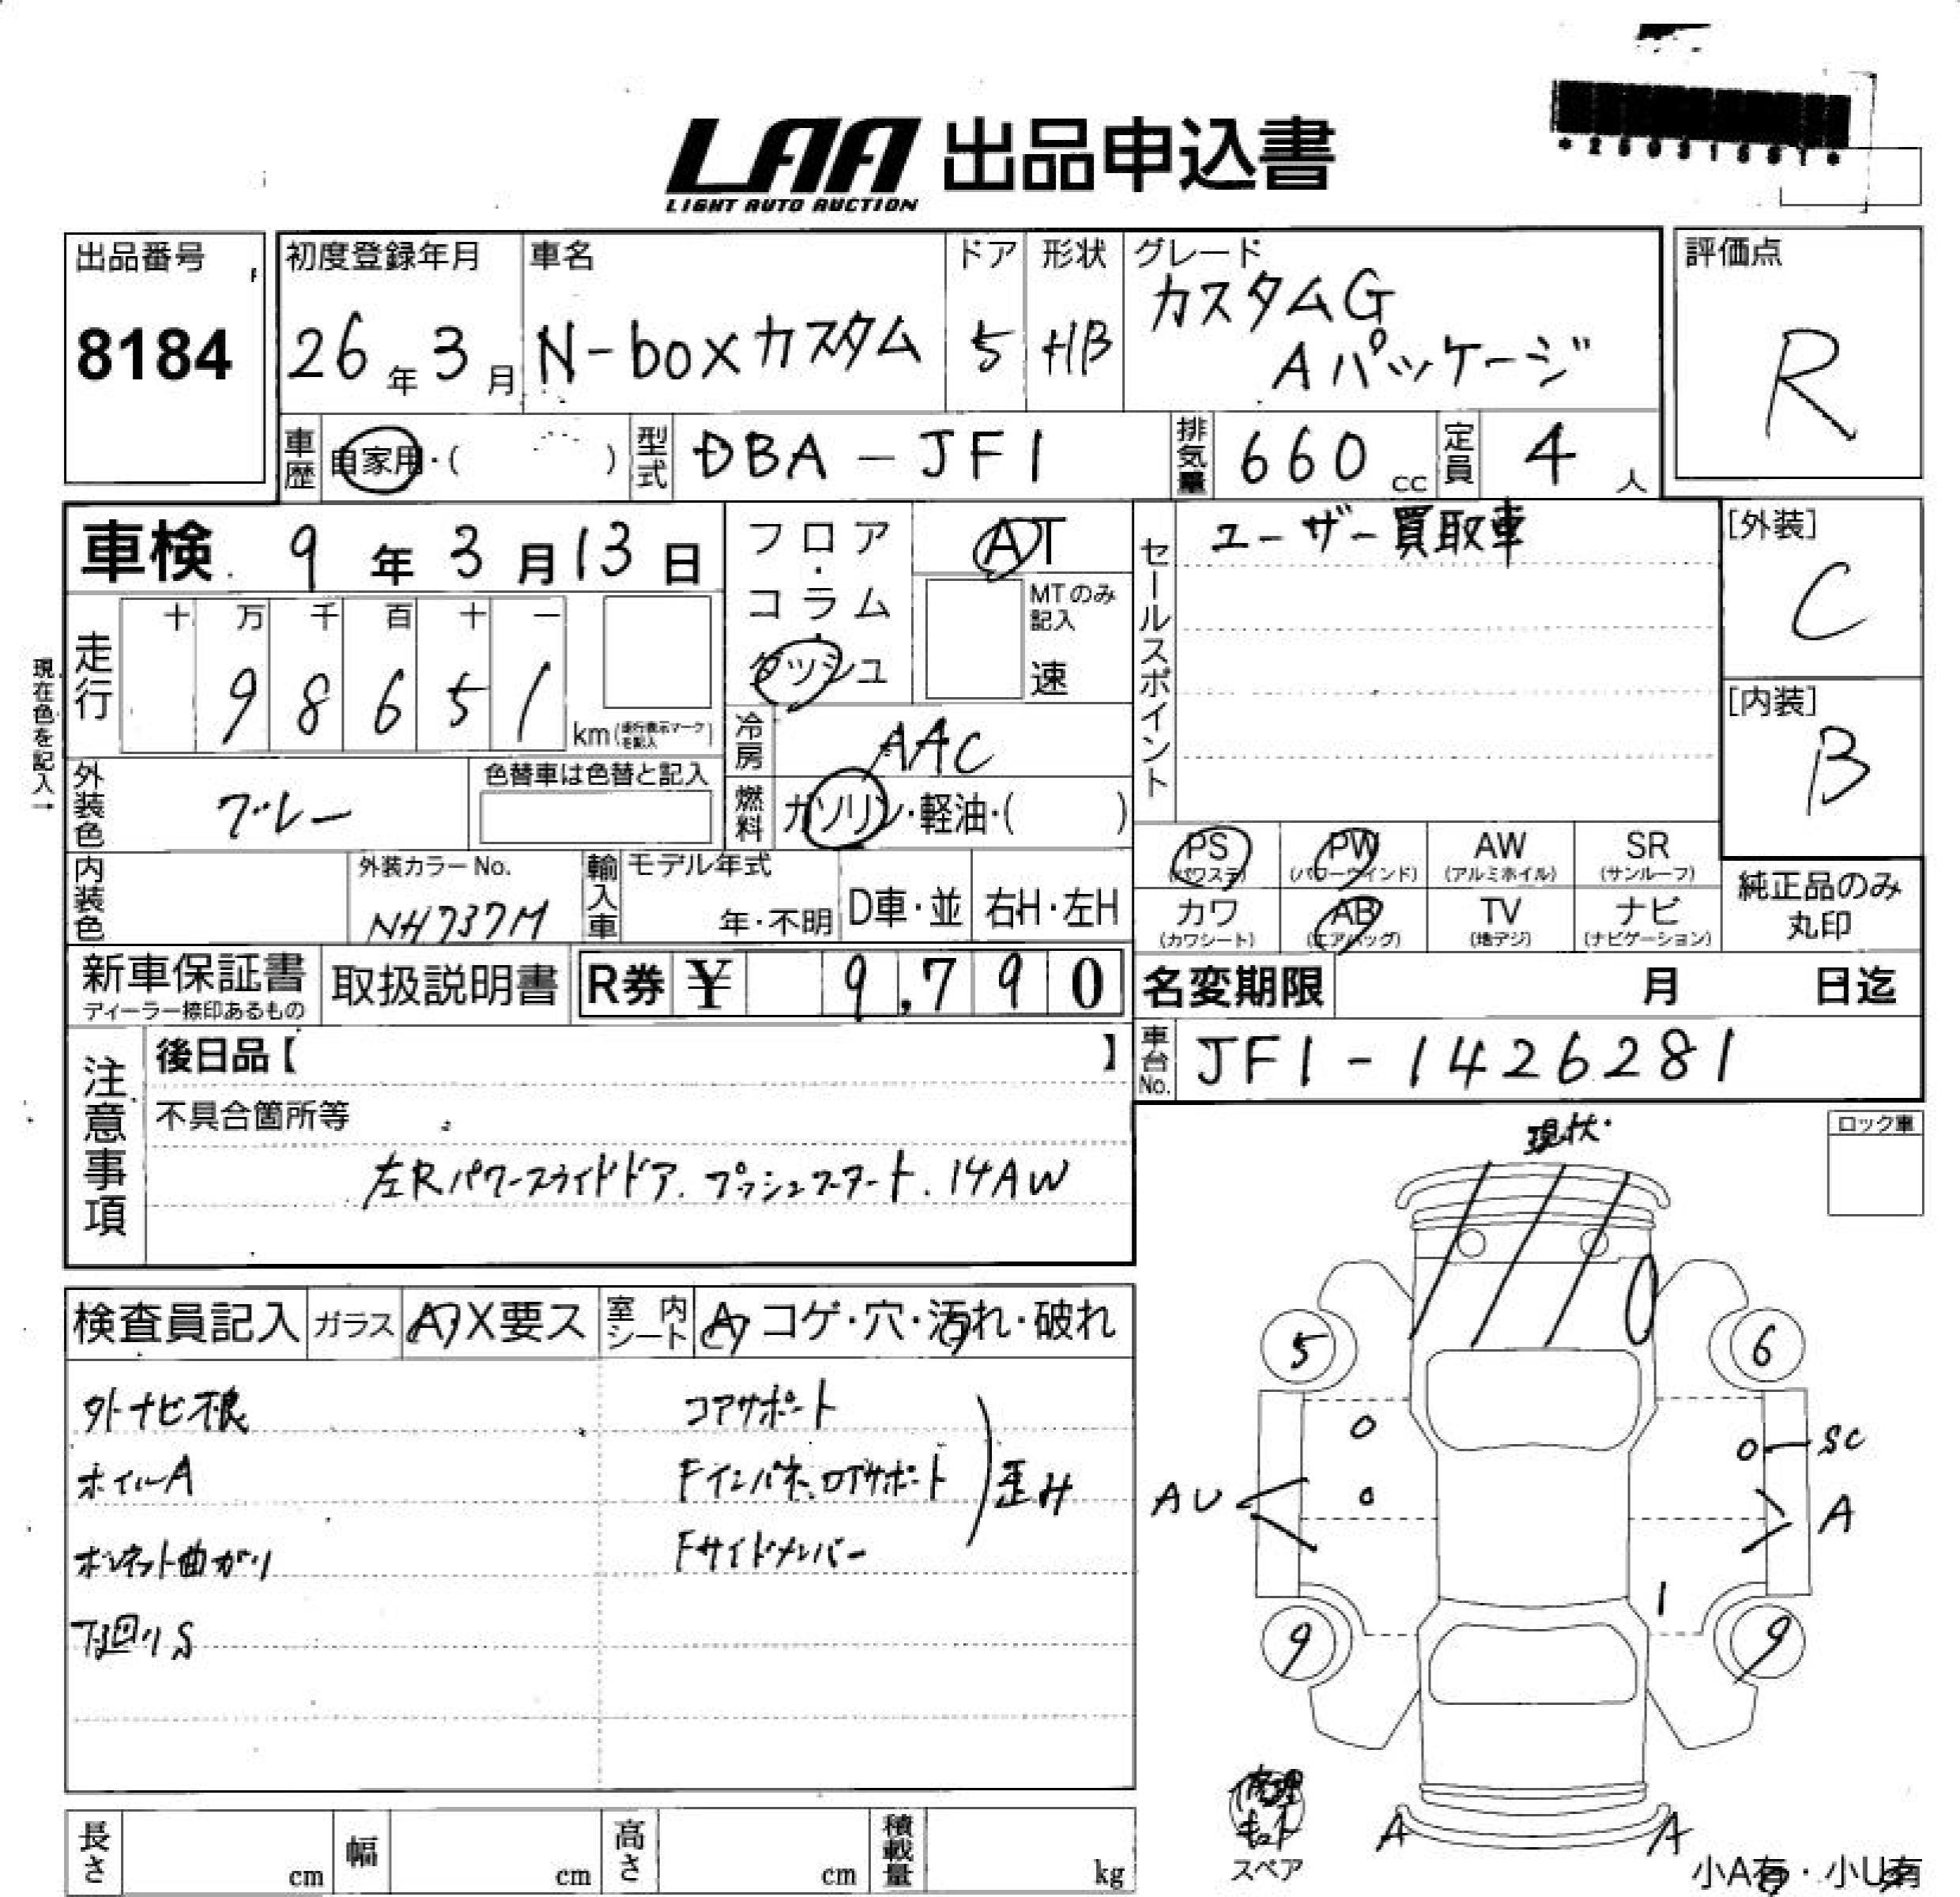 LAA 出品申込書
LIGHT AUTO AUCTION
出品番号
8184
初度登録年月
26年3月
車名
N-boxカスタム
ドア
5
形状
HB
グレード
カスタムG
Aパッケージ
評価点
R
車歴
自家用・( )
型式
DBA-JF1
排気量
660 cc
定員
4 人
車検 9年3月13日
フロア・コラム・ダッシュ
AT
MTのみ記入
速
セールスポイント
ユーザー買取車
[外装]
C
[内装]
B
現在色を記入→
走行
十 万 千 百 十 一
9 8 6 5 1
km(走行表示マークを記入)
冷房
AAC
外装色
グレー
色替車は色替と記入
燃料
ガソリン・軽油・( )
PS
(パワステ)
PW
(パワーウインド)
AW
(アルミホイル)
SR
(サンルーフ)
カワ
(カワシート)
AB
(エアバッグ)
TV
(地デジ)
ナビ
(ナビゲーション)
純正品のみ
丸印
内装色
外装カラーNo.
NH737M
輸入車
モデル年式
年・不明
D車・並
右H・左H
新車保証書
ディーラー捺印あるもの
取扱説明書
R券 ¥ 9,790
名変期限 月 日迄
車台No.
JF1-1426281
注意事項
後日品【 】
不具合箇所等
左Rパワースライドドア. プッシュスタート. 14AW
現状.
ロック車
検査員記入
ガラス
A・X要ス
室内シート
A・コゲ・穴・汚れ・破れ
外ナビ不良
コアサポート
ホイルA
Fインパネ、ロアサポート
歪み
ボンネット曲がり
Fサイドメンバー
下回りS
5
6
SC
AU
A
9
9
修理キット
スペア
A
A
小A有・小U有
長さ cm
幅 cm
高さ cm
積載量 kg